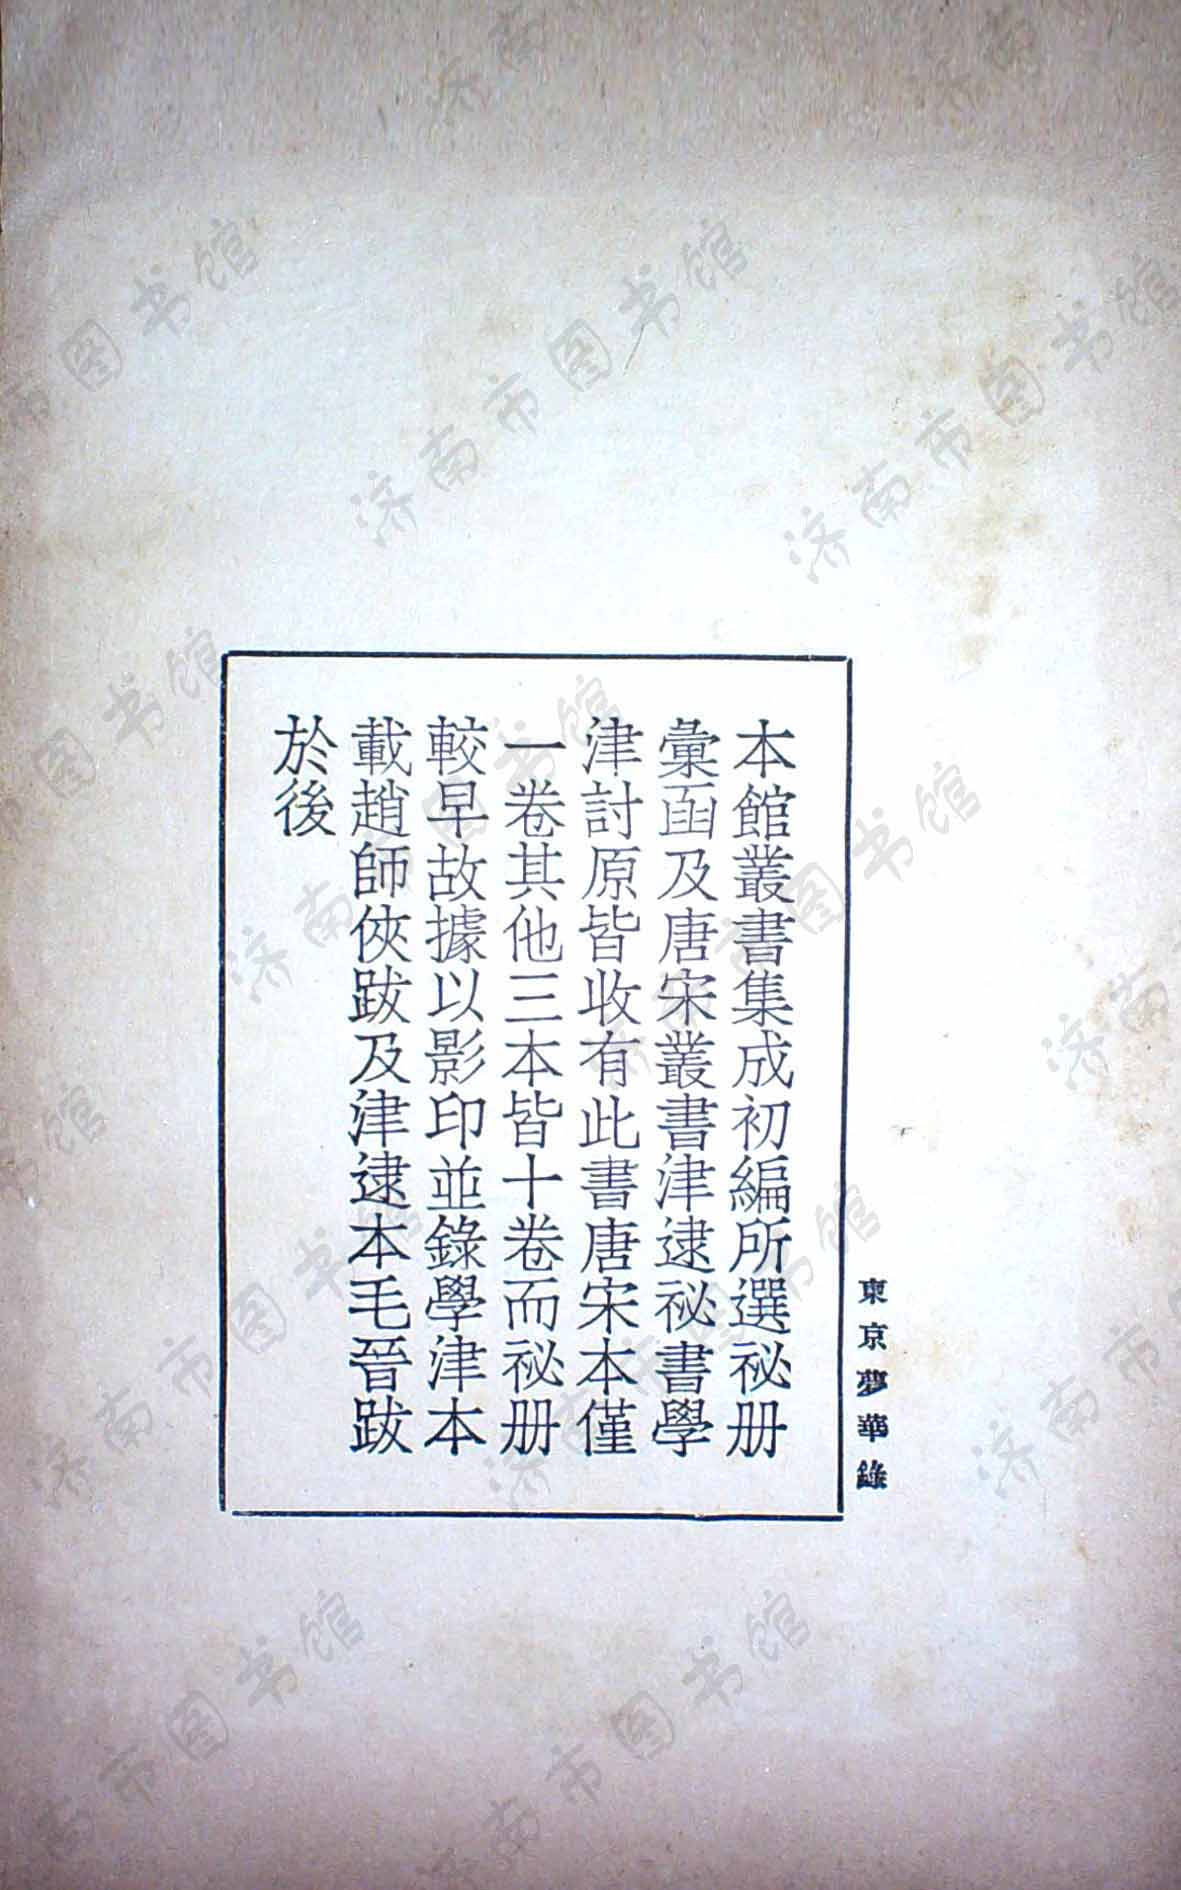 東京夢華錄
本館叢書集成初編所選祕册
彙函及唐宋叢書津逮祕書學
津討原皆收有此書唐宋本僅
一卷其他三本皆十卷而祕册
較早故據以影印並錄學津本
載趙師俠跋及津逮本毛晉跋
於後
济南市图书馆